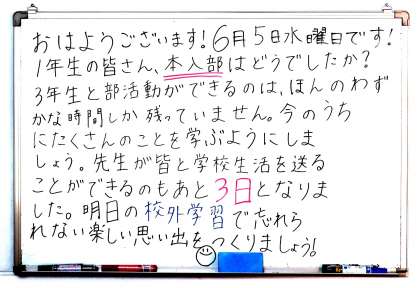 おはようございます!6月5日水曜日です!
1年生の皆さん、本入部はどうでしたか?
3年生と部活動ができるのは、ほんのわず
かな時間しか残っていません。今のうち
にたくさんのことを学ぶようにしま
しょう。先生が皆と学校生活を送る
ことができるのもあと3日となりま
した。明日の校外学習で忘れら
れない楽しい思い出をつくりましょう!